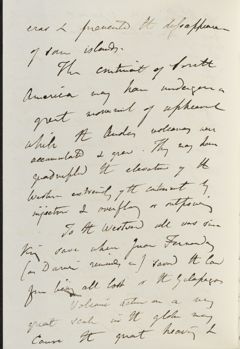 & prevented the disappearance
of some islands.
The continent of South
America may have undergone a
great movement of upheaval
while the Andes volcanoes were
accumulated & grew. They may have
quadrupled the elevation of the
Western extremity of the continent by
injection & overflow or outpouring
To the Westward all was
save when Juan Fernandez
(as Darwin reminds us) saved the
from being all lost & the Galapagos
Volcanic action on a very
great scale in the globe may
cause the great heaving &